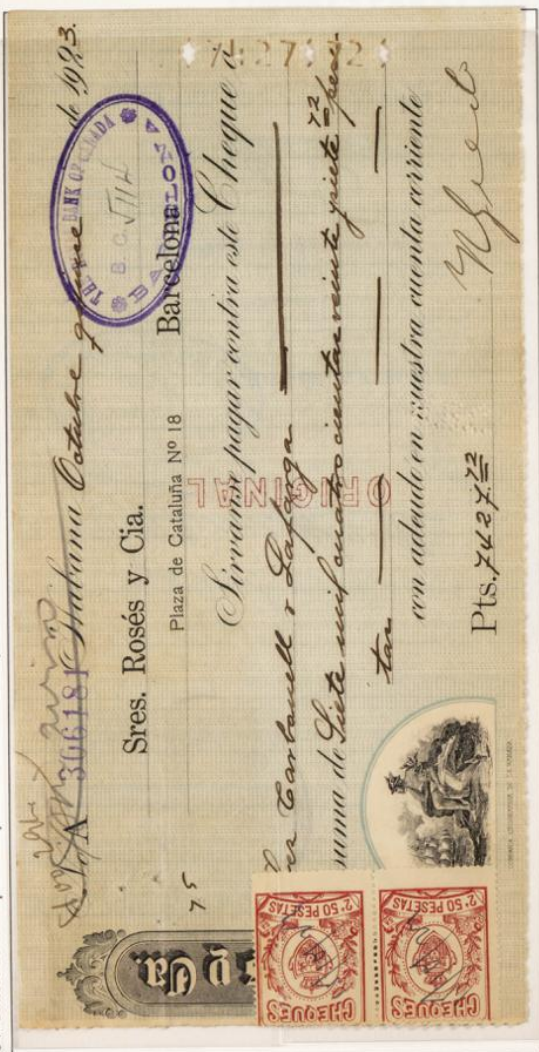 7427 72
No. A 306181 Habana Octubre quince de 1923.
THE BANK OF CANADA
B. C.
BARCELONA
Sres. Rosés y Cia.
Barcelona
Plaza de Cataluña Nº 18
Sirvanse pagar contra este Cheque á
Carbonell y
suma de Siete mil cuatrocientas veinte y siete 72 pese
tas
ORIGINAL
con adeudo en nuestra cuenta corriente
Pts. 7427.72
s y Ca.
CHEQUES
2'50 PESETAS
CHEQUES
2'50 PESETAS